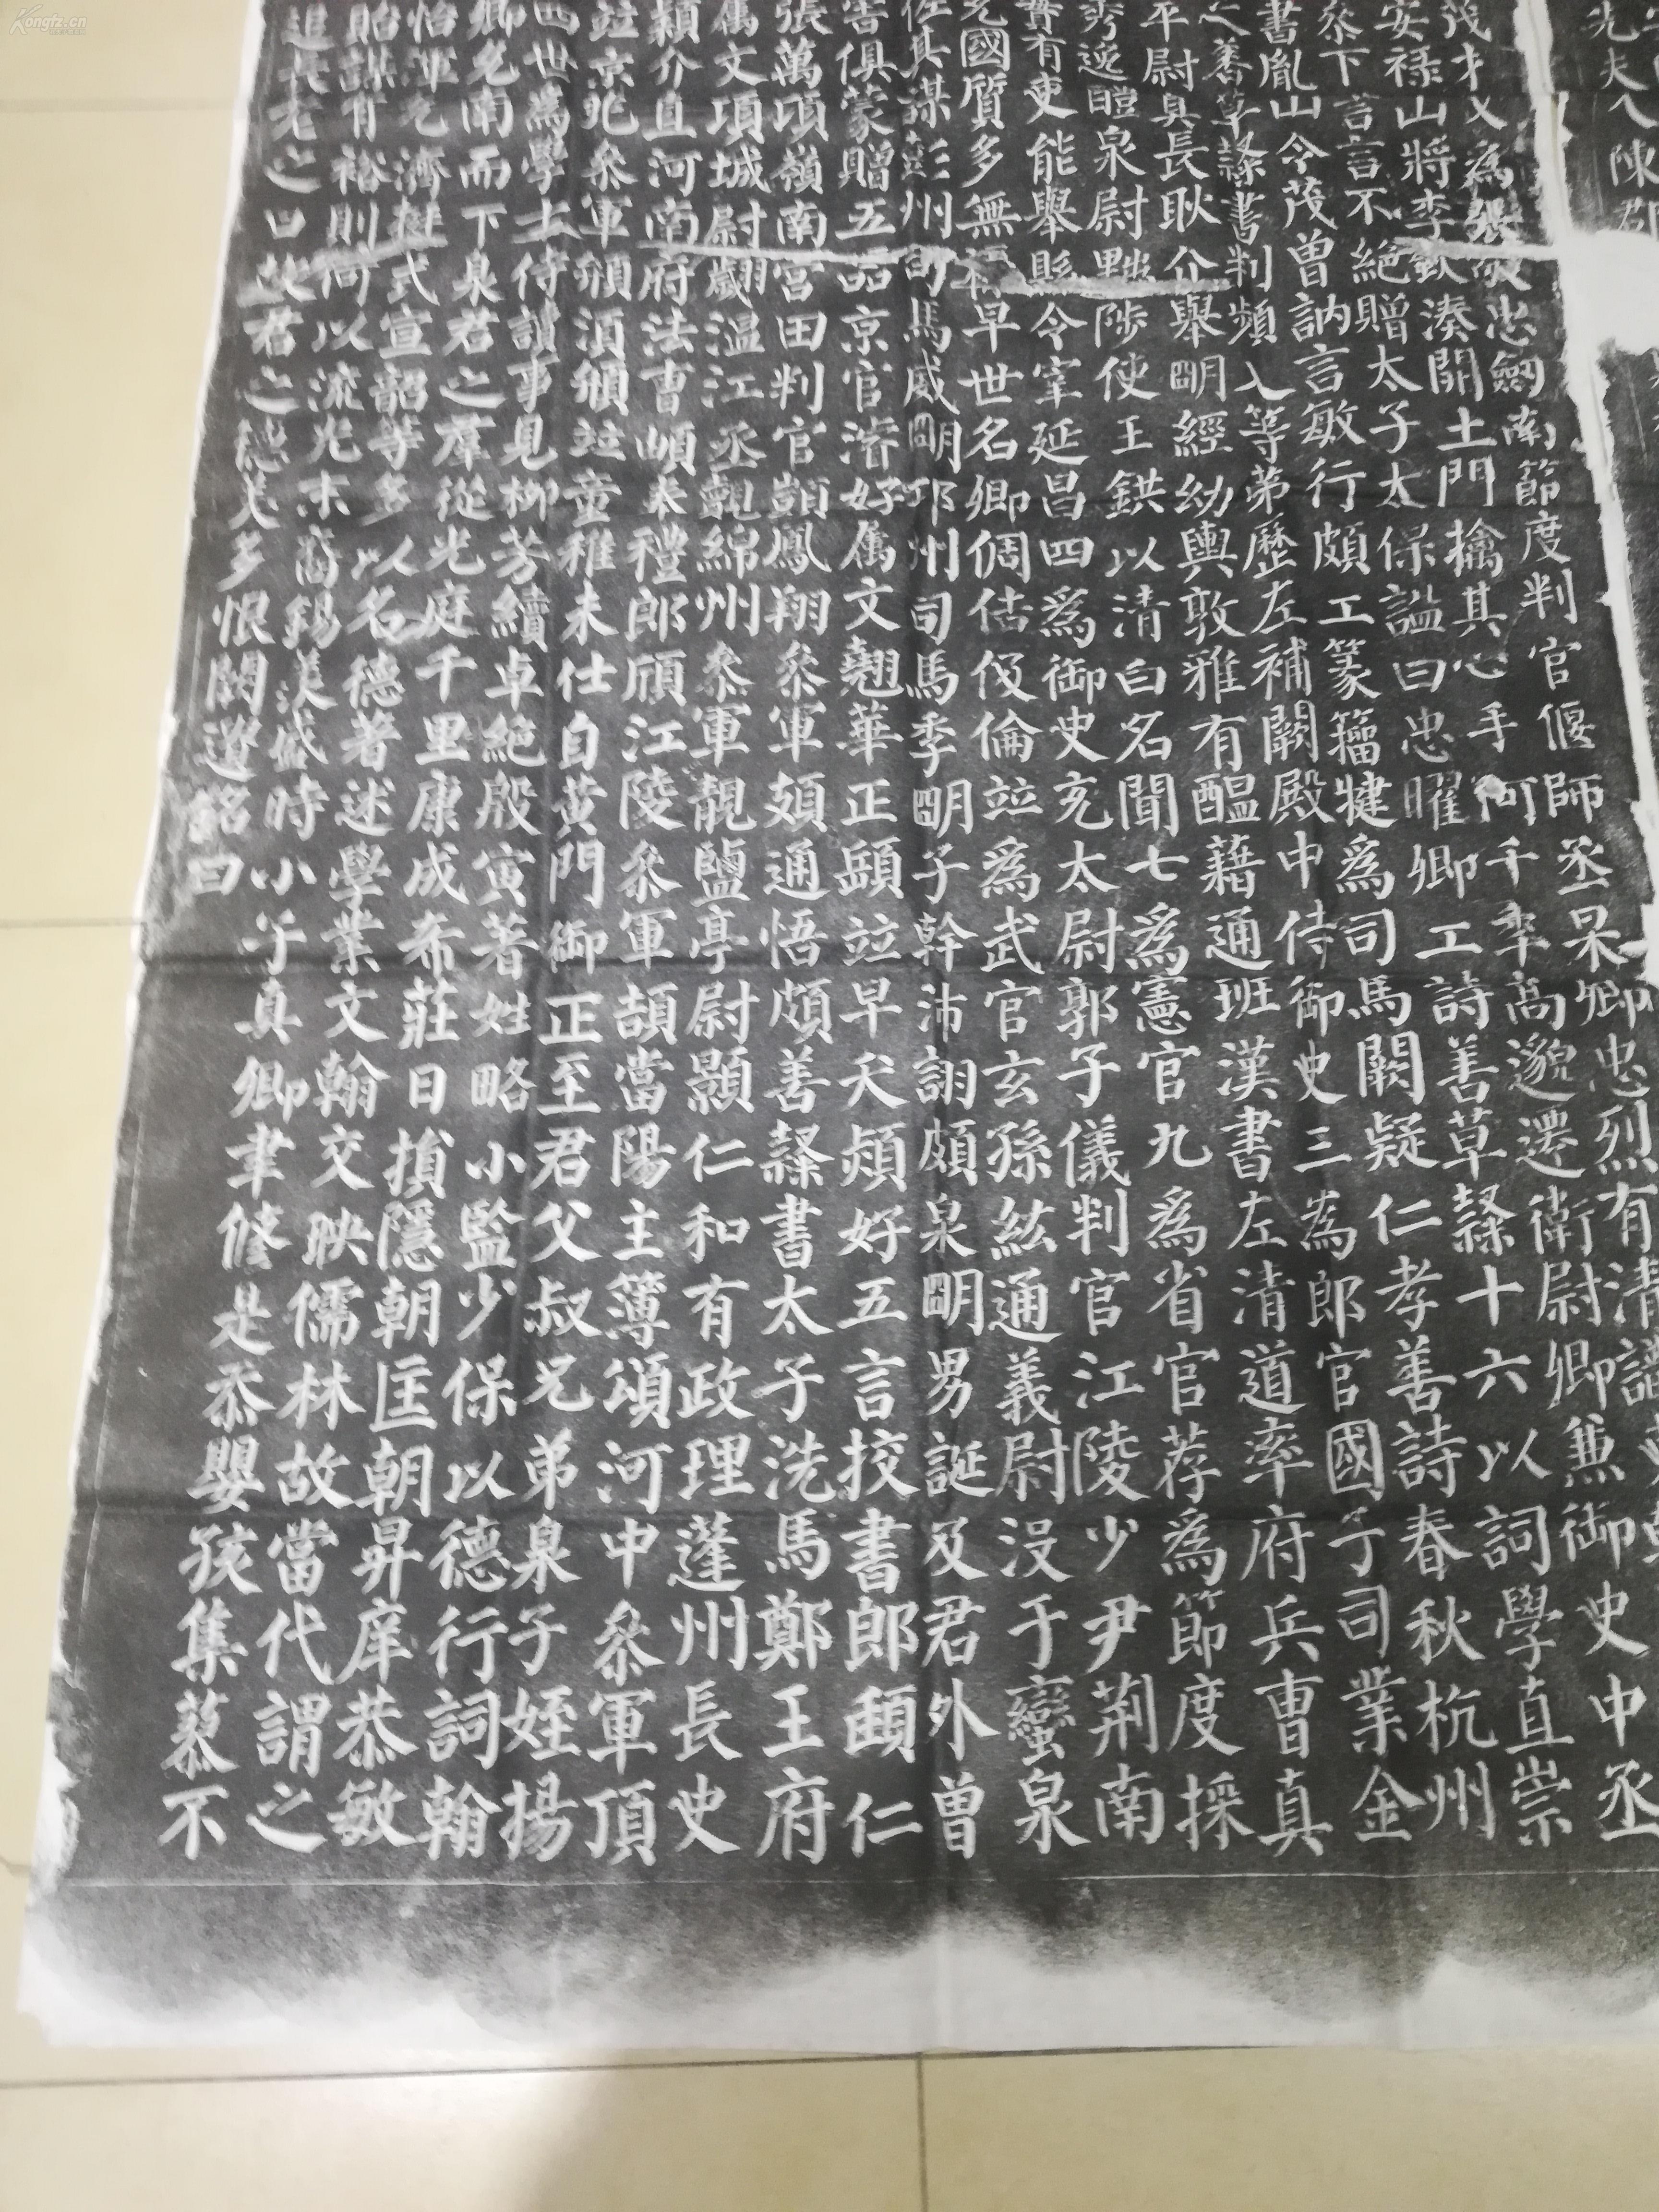 光夫人陳郡
茂才又為張敬忠劒南節度判官偃師丞杲卿忠烈有清識吏
安祿山將李欽湊開土門擒其心手何千年高邈遷衛尉卿兼御史中丞
下言言不絕贈太子太保諡曰忠曜卿工詩善草隸十六以詞學直崇
書胤山令茂曾訥言敏行頗工篆籒犍為司馬闕疑仁孝善詩春秋杭州
之善草隸書判頻入等第歷左補闕殿中侍御史三為郎官國子司業金
平尉真長耿介舉明經幼輿敦雅有醞藉通班漢書左清道率府兵曹真
秀逸醴泉尉黜陟使王鉷以清白名聞七為憲官九為省官荐為節度採
有吏能舉縣令宰延昌四為御史充太尉郭子儀判官江陵少尹荊南
充國質多無祿早世名卿倜佶伋倫竝為武官玄孫紘通義尉沒于蠻泉
佐其謀彭州司馬威明邛州司馬季明子幹沛詡頗泉明男誕及君外曾
害俱蒙贈五品京官濬好屬文翹華正頤竝早夭熲好五言挍書郎頲仁
張萬頃嶺南營田判官顗鳳翔參軍頍通悟頗善隸書太子洗馬鄭王府
屬文項城尉翽溫江丞覿綿州參軍靚鹽亭尉顯仁和有政理蓬州長史
穎介直河南府法曹頔奉禮郎頎江陵參軍頡當陽主簿頌河中參軍頂
竝京兆參軍頯須頠竝童稚未仕自黃門御正至君父叔兄弟泉子姪揚
四世為學士侍讀事見柳芳續卓絕殷寅著姓略小監少保以德行詞翰
允南而下泉君之羣從光庭千里康成希莊日損隱朝匡朝昇庠恭敏
怡渾允濟挺式宣韶等多以名德著述學業文翰交映儒林故當代謂之
貽謀有裕則何以流光末裔錫羨盛時小子真卿聿修是忝嬰孩集蓼不
追長老之口故君之德美多恨闕遺銘曰
Kongfz.cn